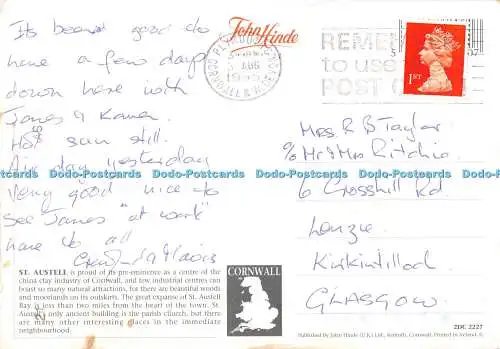 Its been good to
have a few days
down here with
James & Karen
Hot sun still.
Air day yesterday
very good nice to
see James "at work"
love to all
John Hinde
CORNWALL &
AUG
REME
to use
POST C
1ST
Mrs R B Taylor
c/o Mr & Mrs Ritchie
6 Crosshill Rd
Lenzie
Kirkintilloch
GLASGOW
Dodo-Postcards Dodo-Postcards Dodo-Postcards Dodo-Postcards Dodo-Postcards
ST. AUSTELL is proud of its pre-eminence as a centre of the
china clay industry of Cornwall, and few industrial centres can
boast so many natural attractions, for there are beautiful woods
and moorlands on its outskirts. The great expanse of St. Austell
Bay is less than two miles from the heart of the town. St.
Austell's only ancient building is the parish church, but there
are many other interesting places in the immediate
neighbourhood.
CORNWALL
2DC 2227
Published by John Hinde (U.K.) Ltd., Redruth, Cornwall. Printed in Ireland.